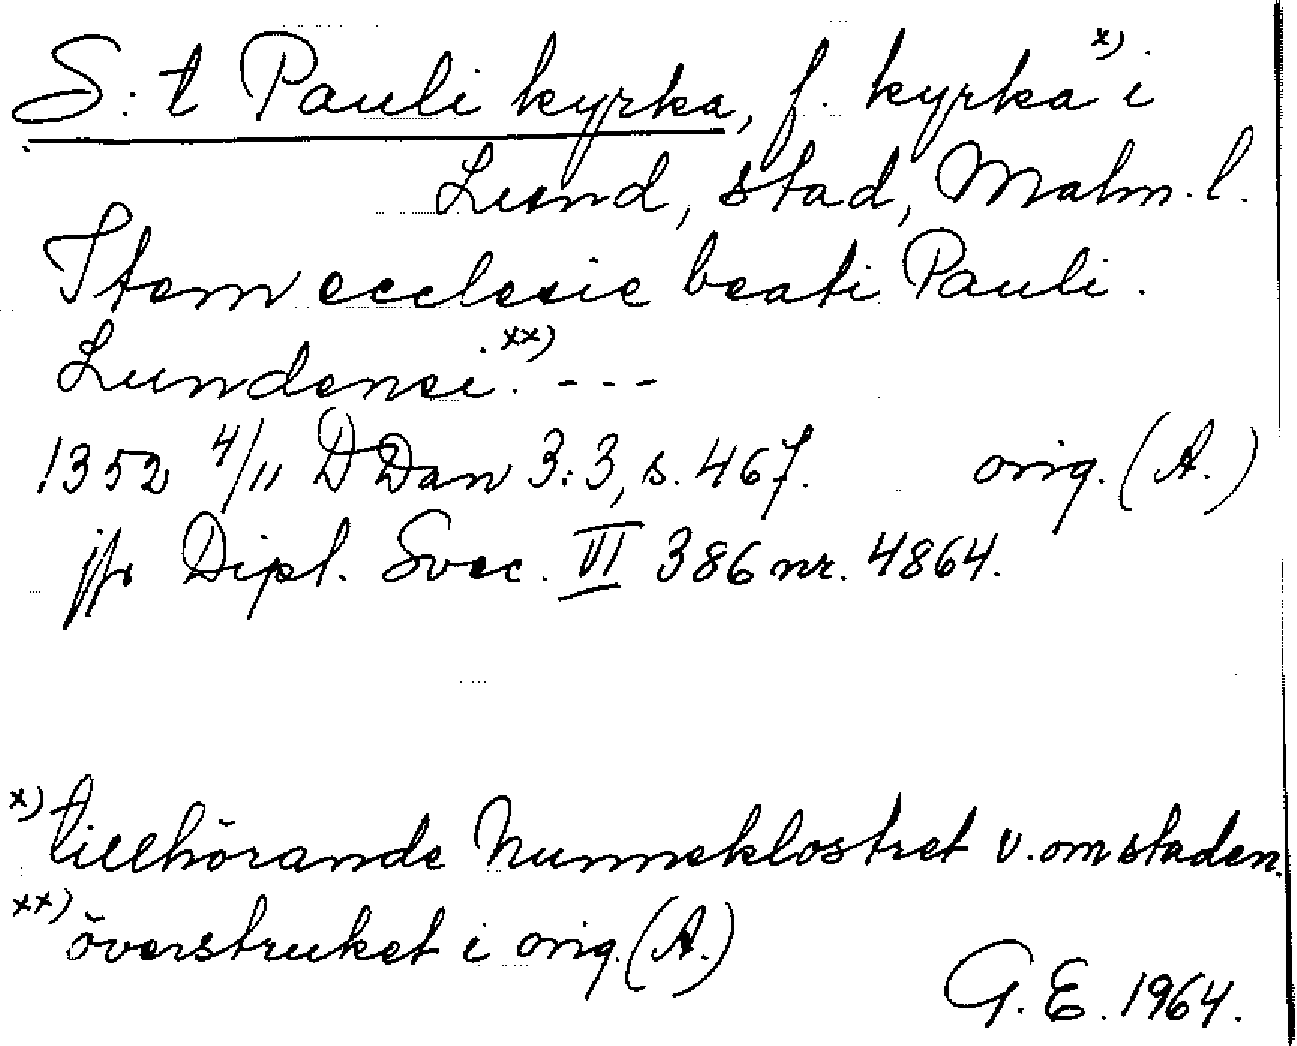 S:t Pauli kyrka, f. kyrka x) i
Lund, stad, Malm. l.
Item ecclesie beati Pauli
Lundensi. xx) ---
1352 4/11 DDan 3:3, s. 467. orig. (A.)
jfr Dipl. Svec. VI 386 nr. 4864.
x) tillhörande Nunneklostret v. om staden.
xx) överstruket i orig. (A.)
G. E. 1964.